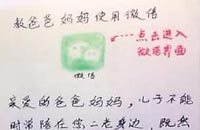 教爸爸妈妈使用微信
点击进入
微信界面
微信
亲爱的爸爸妈妈，儿子不能
时常陪在您二老身边，既然